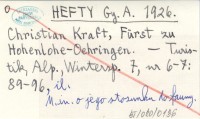 HEFTY Gy. A. 1926.
Christian Kraft, Fürst zu
Hohenlohe-Oehringen. — Turis-
tik, Alp., Wintersp. 7, nr 6-7:
89-96, il.
M.in. o jego stosunku do fauny.